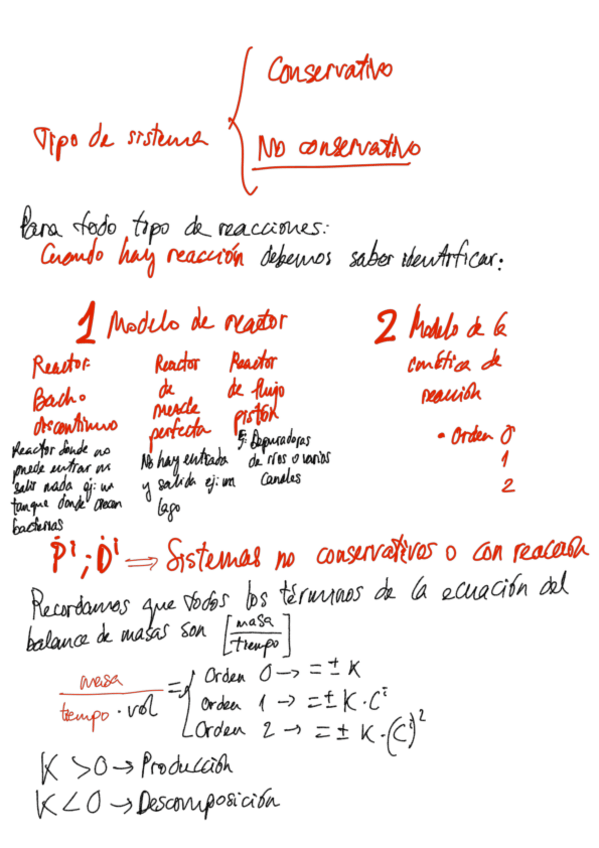 Conservativo
Tipo de sistema
No conservativo
Para todo tipo de reacciones:
Cuando hay reacción debemos saber identificar:
1 Modelo de reactor
2 Modelo de la
cinética de
reacción
• Orden 0
1
2
Reactor
Bacho
discontinuo
Reactor donde no
puede entrar ni
salir nada ej: un
tanque donde crecen
bacterias
Reactor
de
mezcla
perfecta
No hay entrada
y salida ej: un
lago
Reactor
de flujo
pistón
Depuradoras
de ríos o varios
canales
Ṗⁱ ; Ḋⁱ ⇒ Sistemas no conservativos o con reacción
Recordamos que todos los términos de la ecuación del
balance de masas son [masa/tiempo]
masa/tiempo · vol = { Orden 0 → = ± K
Orden 1 → = ± K · Cⁱ
Orden 2 → = ± K · (Cⁱ)²
K > 0 → Producción
K < 0 → Descomposición